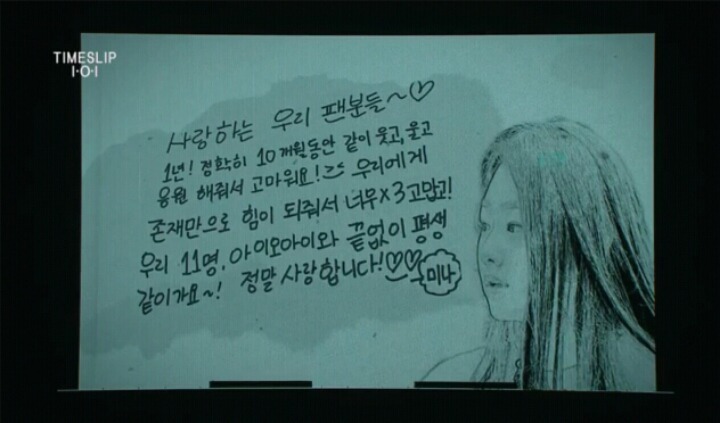 TIMESLIP
I·O·I
사랑하는 우리 팬분들~♡
1년! 정확히 10개월동안 같이 웃고, 울고
응원 해줘서 고마워요! 우리에게
존재만으로 힘이 되줘서 너무×3 고맙고!
우리 11명, 아이오아이와 끝없이 평생
같이가요~! 정말 사랑합니다!♡♡
미나